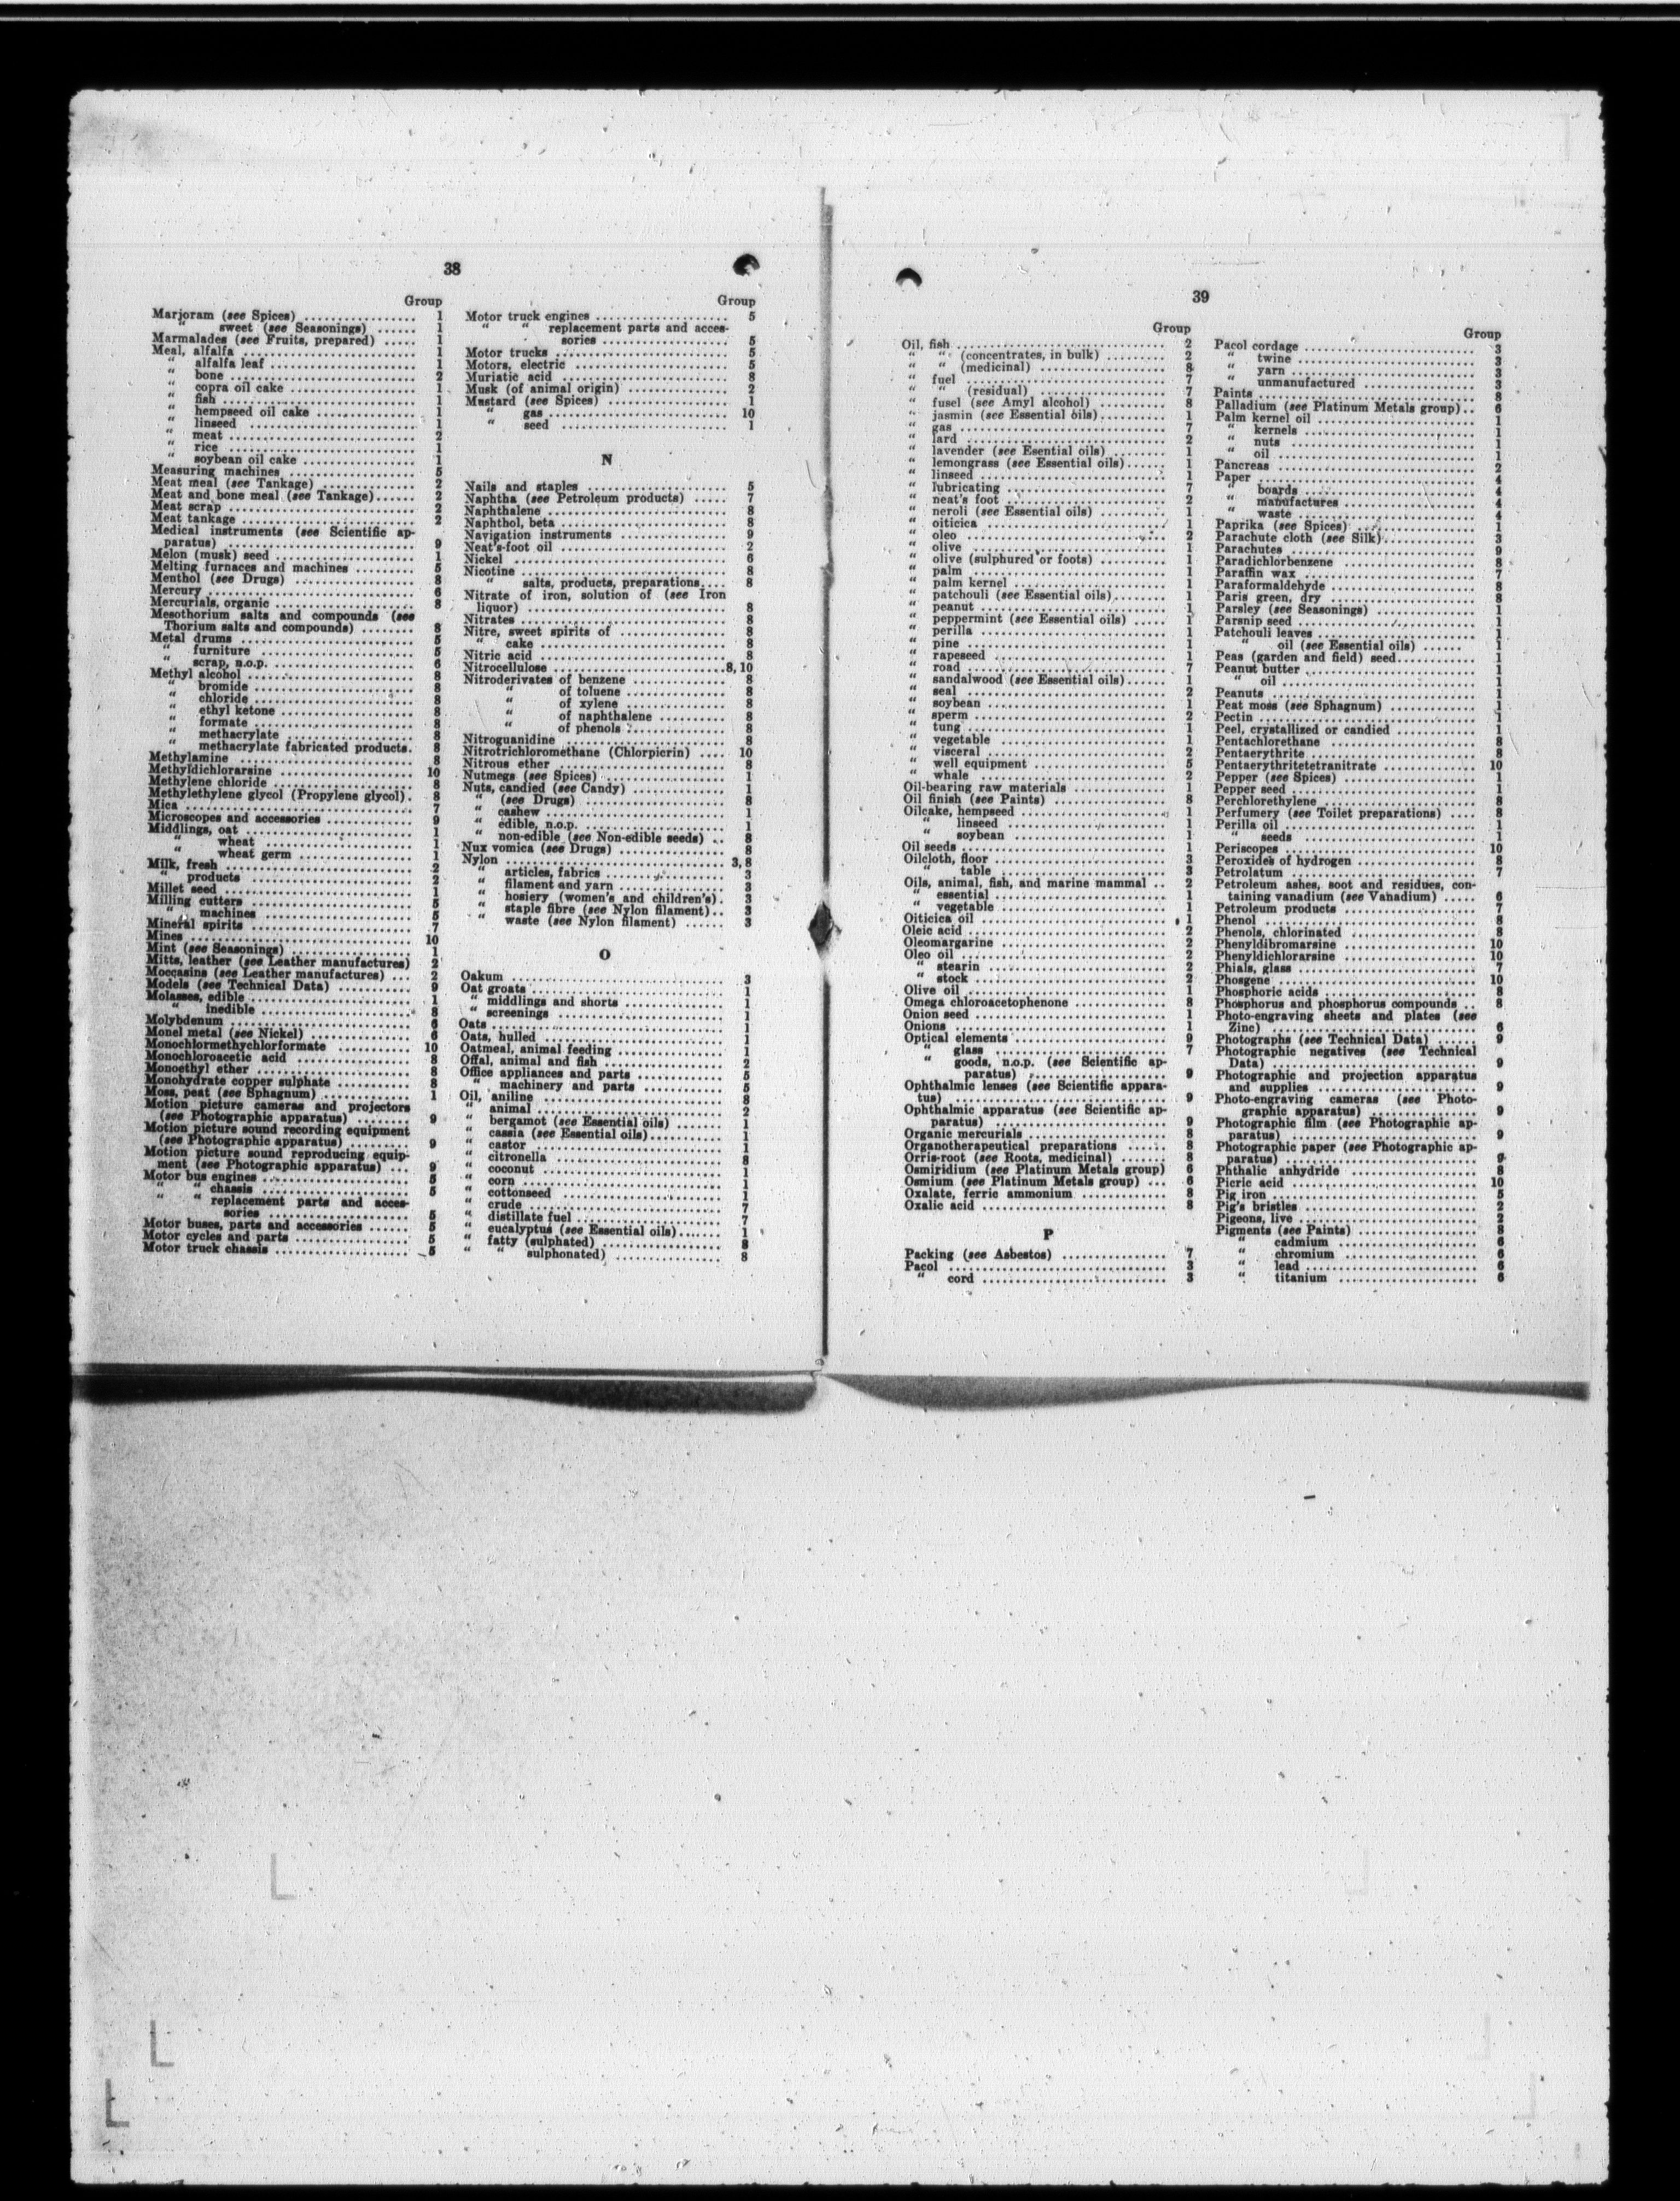 38
Group
Marjoram (see Spices) ................ 1
" sweet (see Seasonings) ...... 1
Marmalades (see Fruits, prepared) ..... 1
Meal, alfalfa ......................... 1
" alfalfa leaf ..................... 1
" bone ........................... 2
" copra oil cake ................... 1
" fish ............................ 1
" hempseed oil cake .............. 1
" linseed ........................ 1
" meat ........................... 2
" rice ............................ 1
" soybean oil cake ................ 1
Measuring machines .................. 5
Meat meal (see Tankage) .............. 2
Meat and bone meal (see Tankage)...... 2
Meat scrap ........................... 2
Meat tankage ......................... 2
Medical instruments (see Scientific ap-
paratus) ........................... 9
Melon (musk) seed .................... 1
Melting furnaces and machines ......... 5
Menthol (see Drugs) .................. 8
Mercury .............................. 6
Mercurials, organic .................... 8
Mesothorium salts and compounds (see
Thorium salts and compounds) ........ 8
Metal drums ......................... 5
" furniture ....................... 5
" scrap, n.o.p. .................... 6
Methyl alcohol ........................ 8
" bromide ....................... 8
" chloride ....................... 8
" ethyl ketone ................... 8
" formate ........................ 8
" methacrylate ................... 8
" methacrylate fabricated products. 8
Methylamine ......................... 8
Methyldichlorarsine ................... 10
Methylene chloride .................... 8
Methylethylene glycol (Propylene glycol). 8
Mica ................................. 7
Microscopes and accessories ............ 9
Middlings, oat ........................ 1
" wheat ..................... 1
" wheat germ ................ 1
Milk, fresh ............................ 2
" products ........................ 2
Millet seed ............................ 1
Milling cutters ........................ 5
" machines ...................... 5
Mineral spirits ........................ 7
Mines ................................ 10
Mint (see Seasonings) .................. 1
Mitts, leather (see Leather manufactures) 2
Moccasins (see Leather manufactures) ... 2
Models (see Technical Data) ........... 9
Molasses, edible ....................... 1
" inedible ..................... 8
Molybdenum ......................... 6
Monel metal (see Nickel) ............... 6
Monochlormethychlorformate .......... 10
Monochloroacetic acid ................. 8
Monoethyl ether ...................... 8
Monohydrate copper sulphate ........... 8
Moss, peat (see Sphagnum) ............. 1
Motion picture cameras and projectors
(see Photographic apparatus) ......... 9
Motion picture sound recording equipment
(see Photographic apparatus) ......... 9
Motion picture sound reproducing equip-
ment (see Photographic apparatus) ... 9
Motor bus engines ..................... 5
" " chassis ..................... 5
" " replacement parts and acces-
sories ..................... 5
Motor buses, parts and accessories ...... 5
Motor cycles and parts ................ 5
Motor truck chassis .................... 5
Group
Motor truck engines ................... 5
" " replacement parts and acces-
sories ................... 5
Motor trucks ......................... 5
Motors, electric ....................... 5
Muriatic acid ......................... 8
Musk (of animal origin) ............... 2
Mustard (see Spices) .................. 1
" gas .......................... 10
" seed ......................... 1
N
Nails and staples ..................... 5
Naphtha (see Petroleum products) ..... 7
Naphthalene .......................... 8
Naphthol, beta ........................ 8
Navigation instruments ................ 9
Neat's-foot oil ........................ 2
Nickel ................................ 6
Nicotine .............................. 8
" salts, products, preparations.... 8
Nitrate of iron, solution of (see Iron
liquor) ............................. 8
Nitrates .............................. 8
Nitre, sweet spirits of ................. 8
" cake ............................ 8
Nitric acid ............................ 8
Nitrocellulose ......................... 8, 10
Nitroderivates of benzene .............. 8
" of toluene .............. 8
" of xylene ............... 8
" of naphthalene .......... 8
" of phenols .............. 8
Nitroguanidine ........................ 8
Nitrotrichloromethane (Chlorpicrin) .... 10
Nitrous ether ......................... 8
Nutmegs (see Spices) .................. 1
Nuts, candied (see Candy) ............. 1
" (see Drugs) .................... 8
" cashew ......................... 1
" edible, n.o.p. .................... 1
" non-edible (see Non-edible seeds) .. 8
Nux vomica (see Drugs) ............... 8
Nylon ................................ 3, 8
" articles, fabrics ................. 3
" filament and yarn ............... 3
" hosiery (women's and children's). 3
" staple fibre (see Nylon filament).. 3
" waste (see Nylon filament) ...... 3
O
Oakum ............................... 3
Oat groats ............................ 1
" middlings and shorts .............. 1
" screenings ....................... 1
Oats ................................. 1
Oats, hulled .......................... 1
Oatmeal, animal feeding ............... 1
Offal, animal and fish ................. 2
Office appliances and parts ............ 5
" machinery and parts ............ 5
Oil, aniline ........................... 8
" animal ........................... 2
" bergamot (see Essential oils) ....... 1
" cassia (see Essential oils).......... 1
" castor ........................... 1
" citronella ........................ 8
" coconut ......................... 1
" corn ............................. 1
" cottonseed ....................... 1
" crude ............................ 7
" distillate fuel ..................... 7
" eucalyptus (see Essential oils)...... 1
" fatty (sulphated) ................. 8
" " sulphonated) ............... 8
39
Group
Oil, fish .............................. 2
" " (concentrates, in bulk) ......... 2
" " (medicinal) ................... 8
" fuel ............................. 7
" " (residual) .................... 7
" fusel (see Amyl alcohol) .......... 8
" jasmin (see Essential oils).......... 1
" gas .............................. 7
" lard ............................. 2
" lavender (see Esential oils) ....... 1
" lemongrass (see Essential oils)...... 1
" linseed .......................... 1
" lubricating ....................... 7
" neat's foot ....................... 2
" neroli (see Essential oils) .......... 1
" oiticica .......................... 1
" oleo ............................. 2
" olive ............................ 1
" olive (sulphured or foots) .......... 1
" palm ............................ 1
" palm kernel ..................... 1
" patchouli (see Essential oils)........ 1
" peanut ........................... 1
" peppermint (see Essential oils) ..... 1
" perilla ........................... 1
" pine ............................. 1
" rapeseed ......................... 1
" road ............................. 7
" sandalwood (see Essential oils)...... 1
" seal ............................. 2
" soybean ......................... 1
" sperm ........................... 2
" tung ............................. 1
" vegetable ........................ 1
" visceral .......................... 2
" well equipment ................... 5
" whale ........................... 2
Oil-bearing raw materials .............. 1
Oil finish (see Paints) ................. 8
Oilcake, hempseed ..................... 1
" linseed ....................... 1
" soybean ...................... 1
Oil seeds ............................. 1
Oilcloth, floor ......................... 3
" table ......................... 3
Oils, animal, fish, and marine mammal .. 2
" essential ........................ 1
" vegetable ........................ 1
Oiticica oil ............................ 1
Oleic acid ............................ 2
Oleomargarine ........................ 2
Oleo oil .............................. 2
" stearin .......................... 2
" stock ........................... 2
Olive oil .............................. 1
Omega chloroacetophenone ............. 8
Onion seed ........................... 1
Onions ............................... 1
Optical elements ...................... 9
" glass .......................... 7
" goods, n.o.p. (see Scientific ap-
paratus) .................... 9
Ophthalmic lenses (see Scientific appara-
tus) ................................ 9
Ophthalmic apparatus (see Scientific ap-
paratus) ........................... 9
Organic mercurials .................... 8
Organotherapeutical preparations ...... 8
Orris-root (see Roots, medicinal) ....... 8
Osmiridium (see Platinum Metals group) 6
Osmium (see Platinum Metals group) ... 6
Oxalate, ferric ammonium ............. 8
Oxalic acid ........................... 8
P
Packing (see Asbestos) ................ 7
Pacol ................................ 3
" cord ............................ 3
Group
Pacol cordage ......................... 3
" twine ........................... 3
" yarn ............................ 3
" unmanufactured ................ 3
Paints ................................ 8
Palladium (see Platinum Metals group).. 6
Palm kernel oil ........................ 1
" kernels ......................... 1
" nuts ............................ 1
" oil .............................. 1
Pancreas ............................. 2
Paper ................................ 4
" boards .......................... 4
" manufactures .................... 4
" waste ........................... 4
Paprika (see Spices) ................... 1
Parachute cloth (see Silk).............. 3
Parachutes ........................... 9
Paradichlorbenzene .................... 8
Paraffin wax .......................... 7
Paraformaldehyde ..................... 8
Paris green, dry ....................... 8
Parsley (see Seasonings) ............... 1
Parsnip seed .......................... 1
Patchouli leaves ....................... 1
" oil (see Essential oils) ...... 1
Peas (garden and field) seed............ 1
Peanut butter ......................... 1
" oil ............................. 1
Peanuts .............................. 1
Peat moss (see Sphagnum) ............. 1
Pectin ................................ 1
Peel, crystallized or candied ............ 1
Pentachlorethane ...................... 8
Pentaerythrite ......................... 8
Pentaerythritetetranitrate .............. 10
Pepper (see Spices) .................... 1
Pepper seed .......................... 1
Perchlorethylene ...................... 8
Perfumery (see Toilet preparations) .... 8
Perilla oil ............................. 1
" seeds .......................... 1
Periscopes ............................ 10
Peroxides of hydrogen ................. 8
Petrolatum ........................... 7
Petroleum ashes, soot and residues, con-
taining vanadium (see Vanadium) ..... 6
Petroleum products ................... 7
Phenol ............................... 8
Phenols, chlorinated ................... 8
Phenyldibromarsine ................... 10
Phenyldichlorarsine ................... 10
Phials, glass .......................... 7
Phosgene ............................. 10
Phosphoric acids ...................... 8
Phosphorus and phosphorus compounds .. 8
Photo-engraving sheets and plates (see
Zinc) .............................. 6
Photographs (see Technical Data) ..... 9
Photographic negatives (see Technical
Data) ............................. 9
Photographic and projection apparatus
and supplies ........................ 9
Photo-engraving cameras (see Photo-
graphic apparatus) ................ 9
Photographic film (see Photographic ap-
paratus) ........................... 9
Photographic paper (see Photographic ap-
paratus) ........................... 9
Phthalic anhydride .................... 8
Picric acid ............................ 10
Pig iron .............................. 5
Pig's bristles .......................... 2
Pigeons, live .......................... 2
Pigments (see Paints) ................. 8
" cadmium .................... 6
" chromium ................... 6
" lead ......................... 6
" titanium .................... 6